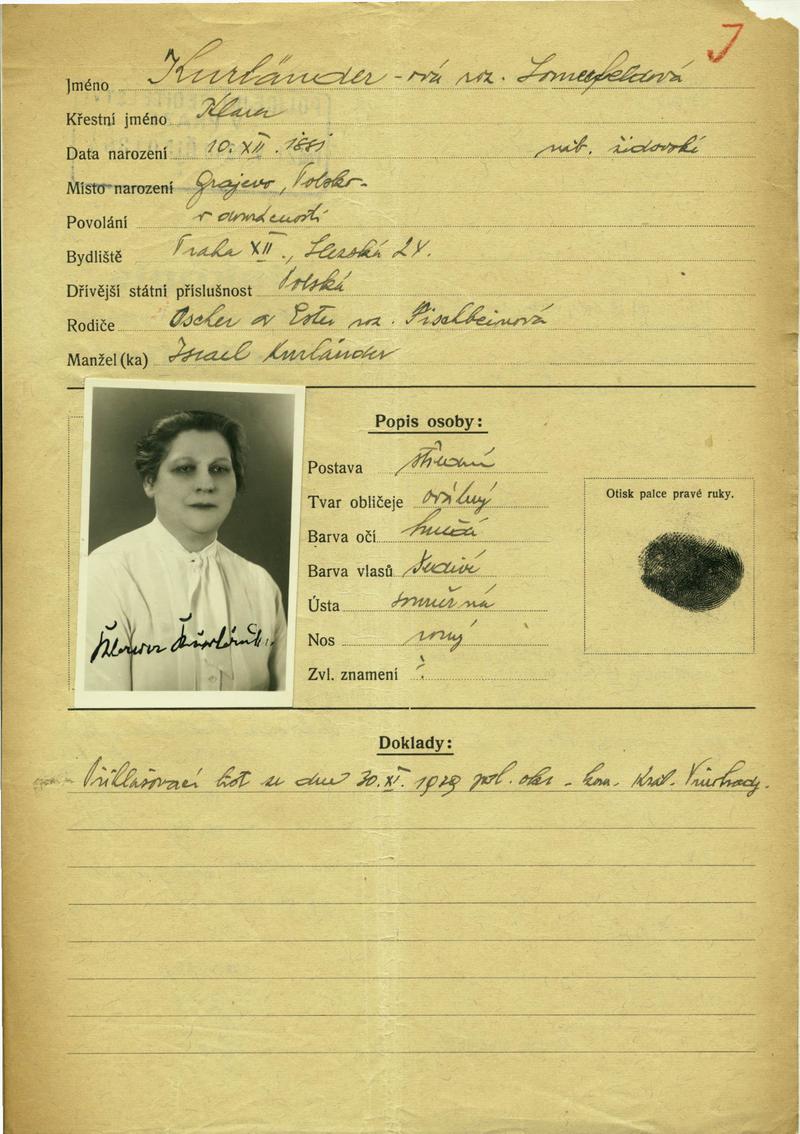 J
Jméno Kurländer-ová roz. Somerfeldová
Křestní jméno Klara
Data narození 10. XII. 1881 náb. židovské
Místo narození Grajevo, Polsko-
Povolání v domácnosti
Bydliště Praha XII., Slezská 24.
Dřívější státní příslušnost Polská
Rodiče Oscher a Ester roz. Fischbeinová
Manžel(ka) Israel Kurländer
Popis osoby:
Postava střední
Tvar obličeje oválný
Barva očí hnědé
Barva vlasů šedivé
Ústa souměrná
Nos rovný
Zvl. znamení
Otisk palce pravé ruky.
Doklady:
Přihlašovací list ze dne 30. XI. 1929 pol. okr. - kom. Král. Vinohrady.